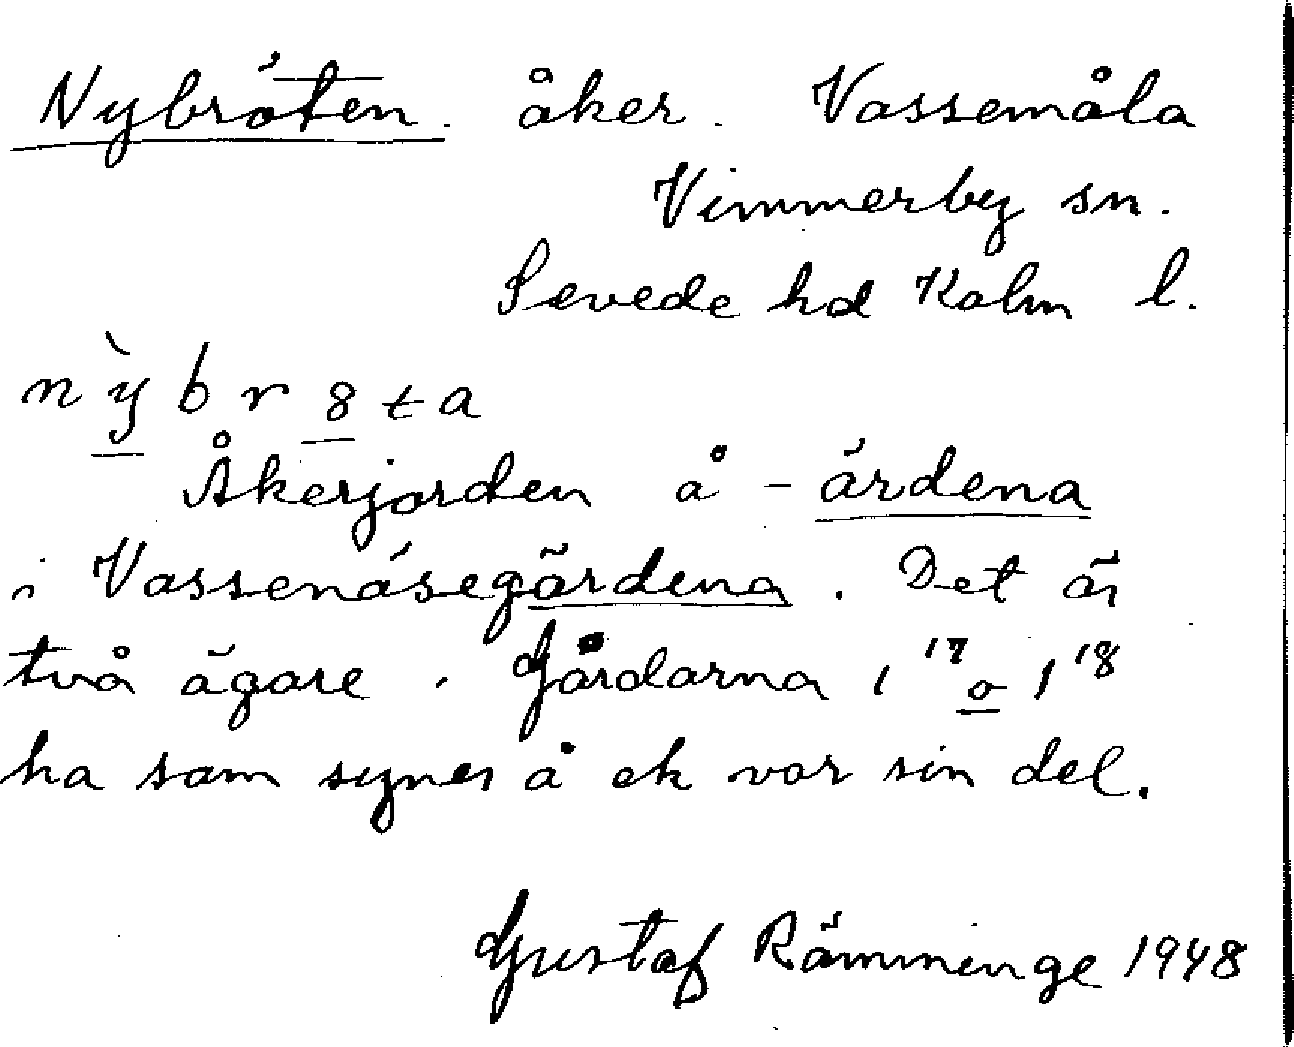 Nybröten. åker. Vassemåla
Vimmerby sn.
Sevede hd Kalm l.
nỳbr8ta
Åkerjorden å - ärdena
i Vassenäsegärdena. Det är
två ägare. Gårdarna 1 17 o 1 18
ha som synes å ek var sin del.
Gustaf Rämminge 1948